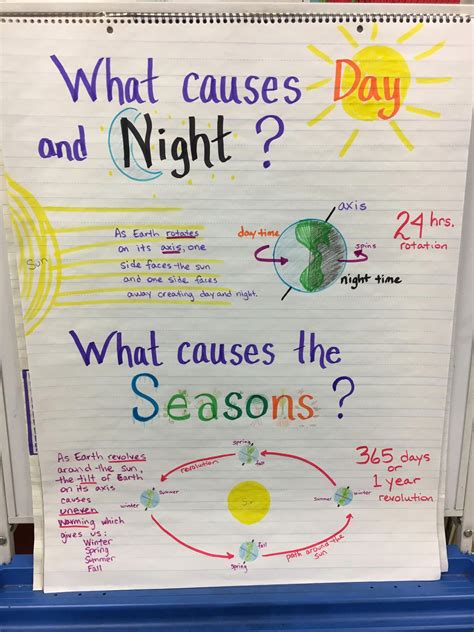 What causes Day
and Night ?
Sun
As Earth rotates
on its axis, one
side faces the sun
and one side faces
away creating day and night.
axis
day time
spins
night time
24 hrs.
rotation
What causes the
Seasons ?
As Earth revolves
around the sun,
the tilt of Earth
on its axis
causes
uneven
warming which
gives us:
Winter
Spring
Summer
Fall
revolution
spring
fall
summer
winter
Sun
summer
winter
fall
spring
path around the
sun
365 days
or
1 year
revolution